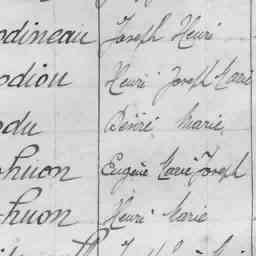 odineau Joseph Henri
odiou Henri Joseph Marie
odu Désiré Marie
ohuon Eugène Marie Joseph
huon Henri Marie